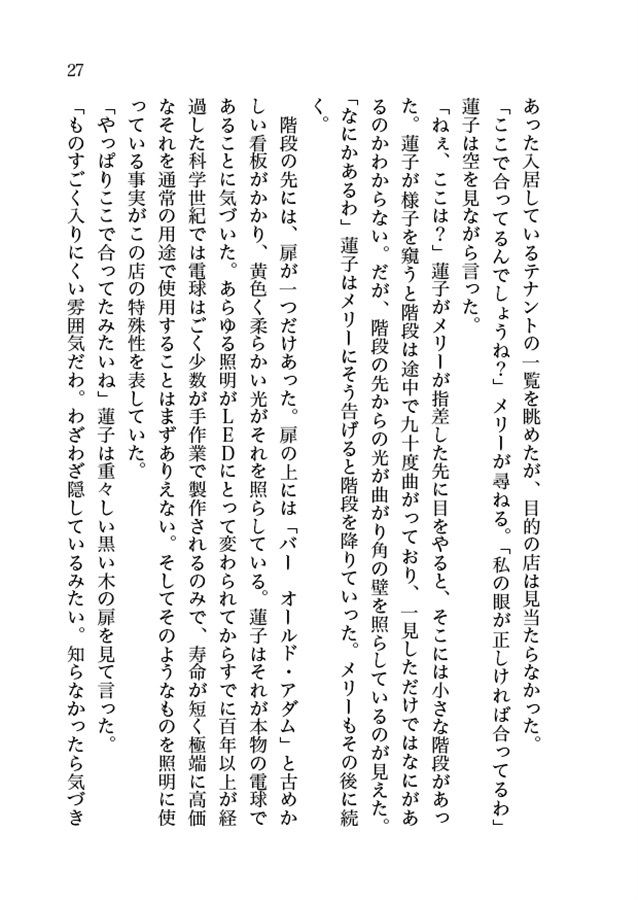 27
あった入居しているテナントの一覧を眺めたが、目的の店は見当たらなかった。
「ここで合ってるんでしょうね?」メリーが尋ねる。「私の眼が正しければ合ってるわ」
蓮子は空を見ながら言った。
「ねぇ、ここは?」蓮子がメリーが指差した先に目をやると、そこには小さな階段があっ
た。蓮子が様子を窺うと階段は途中で九十度曲がっており、一見しただけではなにがあ
るのかわからない。だが、階段の先からの光が曲がり角の壁を照らしているのが見えた。
「なにかあるわ」蓮子はメリーにそう告げると階段を降りていった。メリーもその後に続
く。
階段の先には、扉が一つだけあった。扉の上には「バー　オールド・アダム」と古めか
しい看板がかかり、黄色く柔らかい光がそれを照らしている。蓮子はそれが本物の電球で
あることに気づいた。あらゆる照明がLEDにとって変わられてからすでに百年以上が経
過した科学世紀では電球はごく少数が手作業で製作されるのみで、寿命が短く極端に高価
なそれを通常の用途で使用することはまずありえない。そしてそのようなものを照明に使
っている事実がこの店の特殊性を表していた。
「やっぱりここで合ってたみたいね」蓮子は重々しい黒い木の扉を見て言った。
「ものすごく入りにくい雰囲気だわ。わざわざ隠しているみたい。知らなかったら気づき